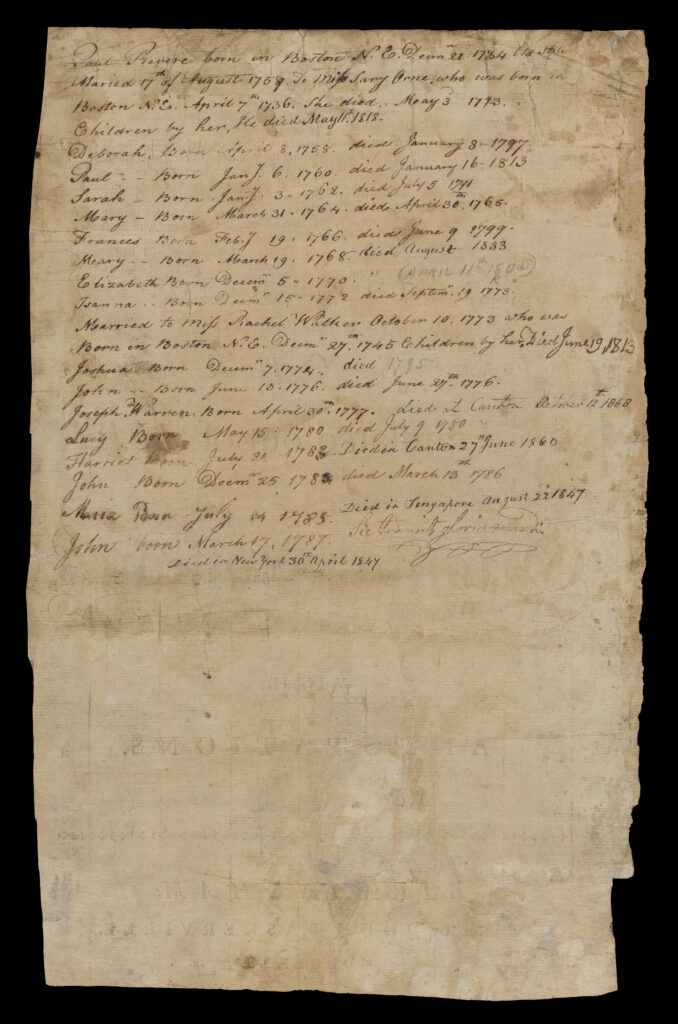 Paul Revere born in Boston N. E. Decmr 21 1734
Maried 17th of August 1757. To Miss Sary Orne, who was born in
Boston N.E. April 7th 1736. She died, Moay 3d 1773.
Children by her, He died May 10th 1818.
Deborah, Born April 8, 1758. died January 8 - 1797.
Paul - - Born Janj. 6. 1760. died January 16 - 1813
Sarah - Born Janj. 3 - 1762. died July 5 1791
Mary - Born March 31 - 1764. died April 30th 1765.
Frances Born Feb.J 19. 1766. died June 9 1799.
Mary - - Born March 19. 1768. died August 1853
Elizabeth Born Decemr 5 - 1770. " (APRIL 11th 1805)
Isanna - - Born Decmr 15 - 1772 died Septemr 19 1773.
Married to Miss Rachel Walker October 10, 1773 who was
Born in Boston N. E. Decmr 27th 1745 Children by her, Died June 19, 1813
Joshua - Born Decemr 7. 1774. died 1795
John - - Born June 13. 1776. died June 27th 1776.
Joseph Warren Born April 30th 1777. Died at Canton October 12th 1868
Lucy Born May 15 - 1780 died July 9 1780
Harriet Born July 20 1782. Died in Canton 27th June 1860
John Born Decmr 25 1783 died March 13th 1786
Maria Born July 14 1785. Died in Singapore August 22d 1847
John born March 17, 1787. Sic transit gloria mundi
Died in New York 30th April 1847